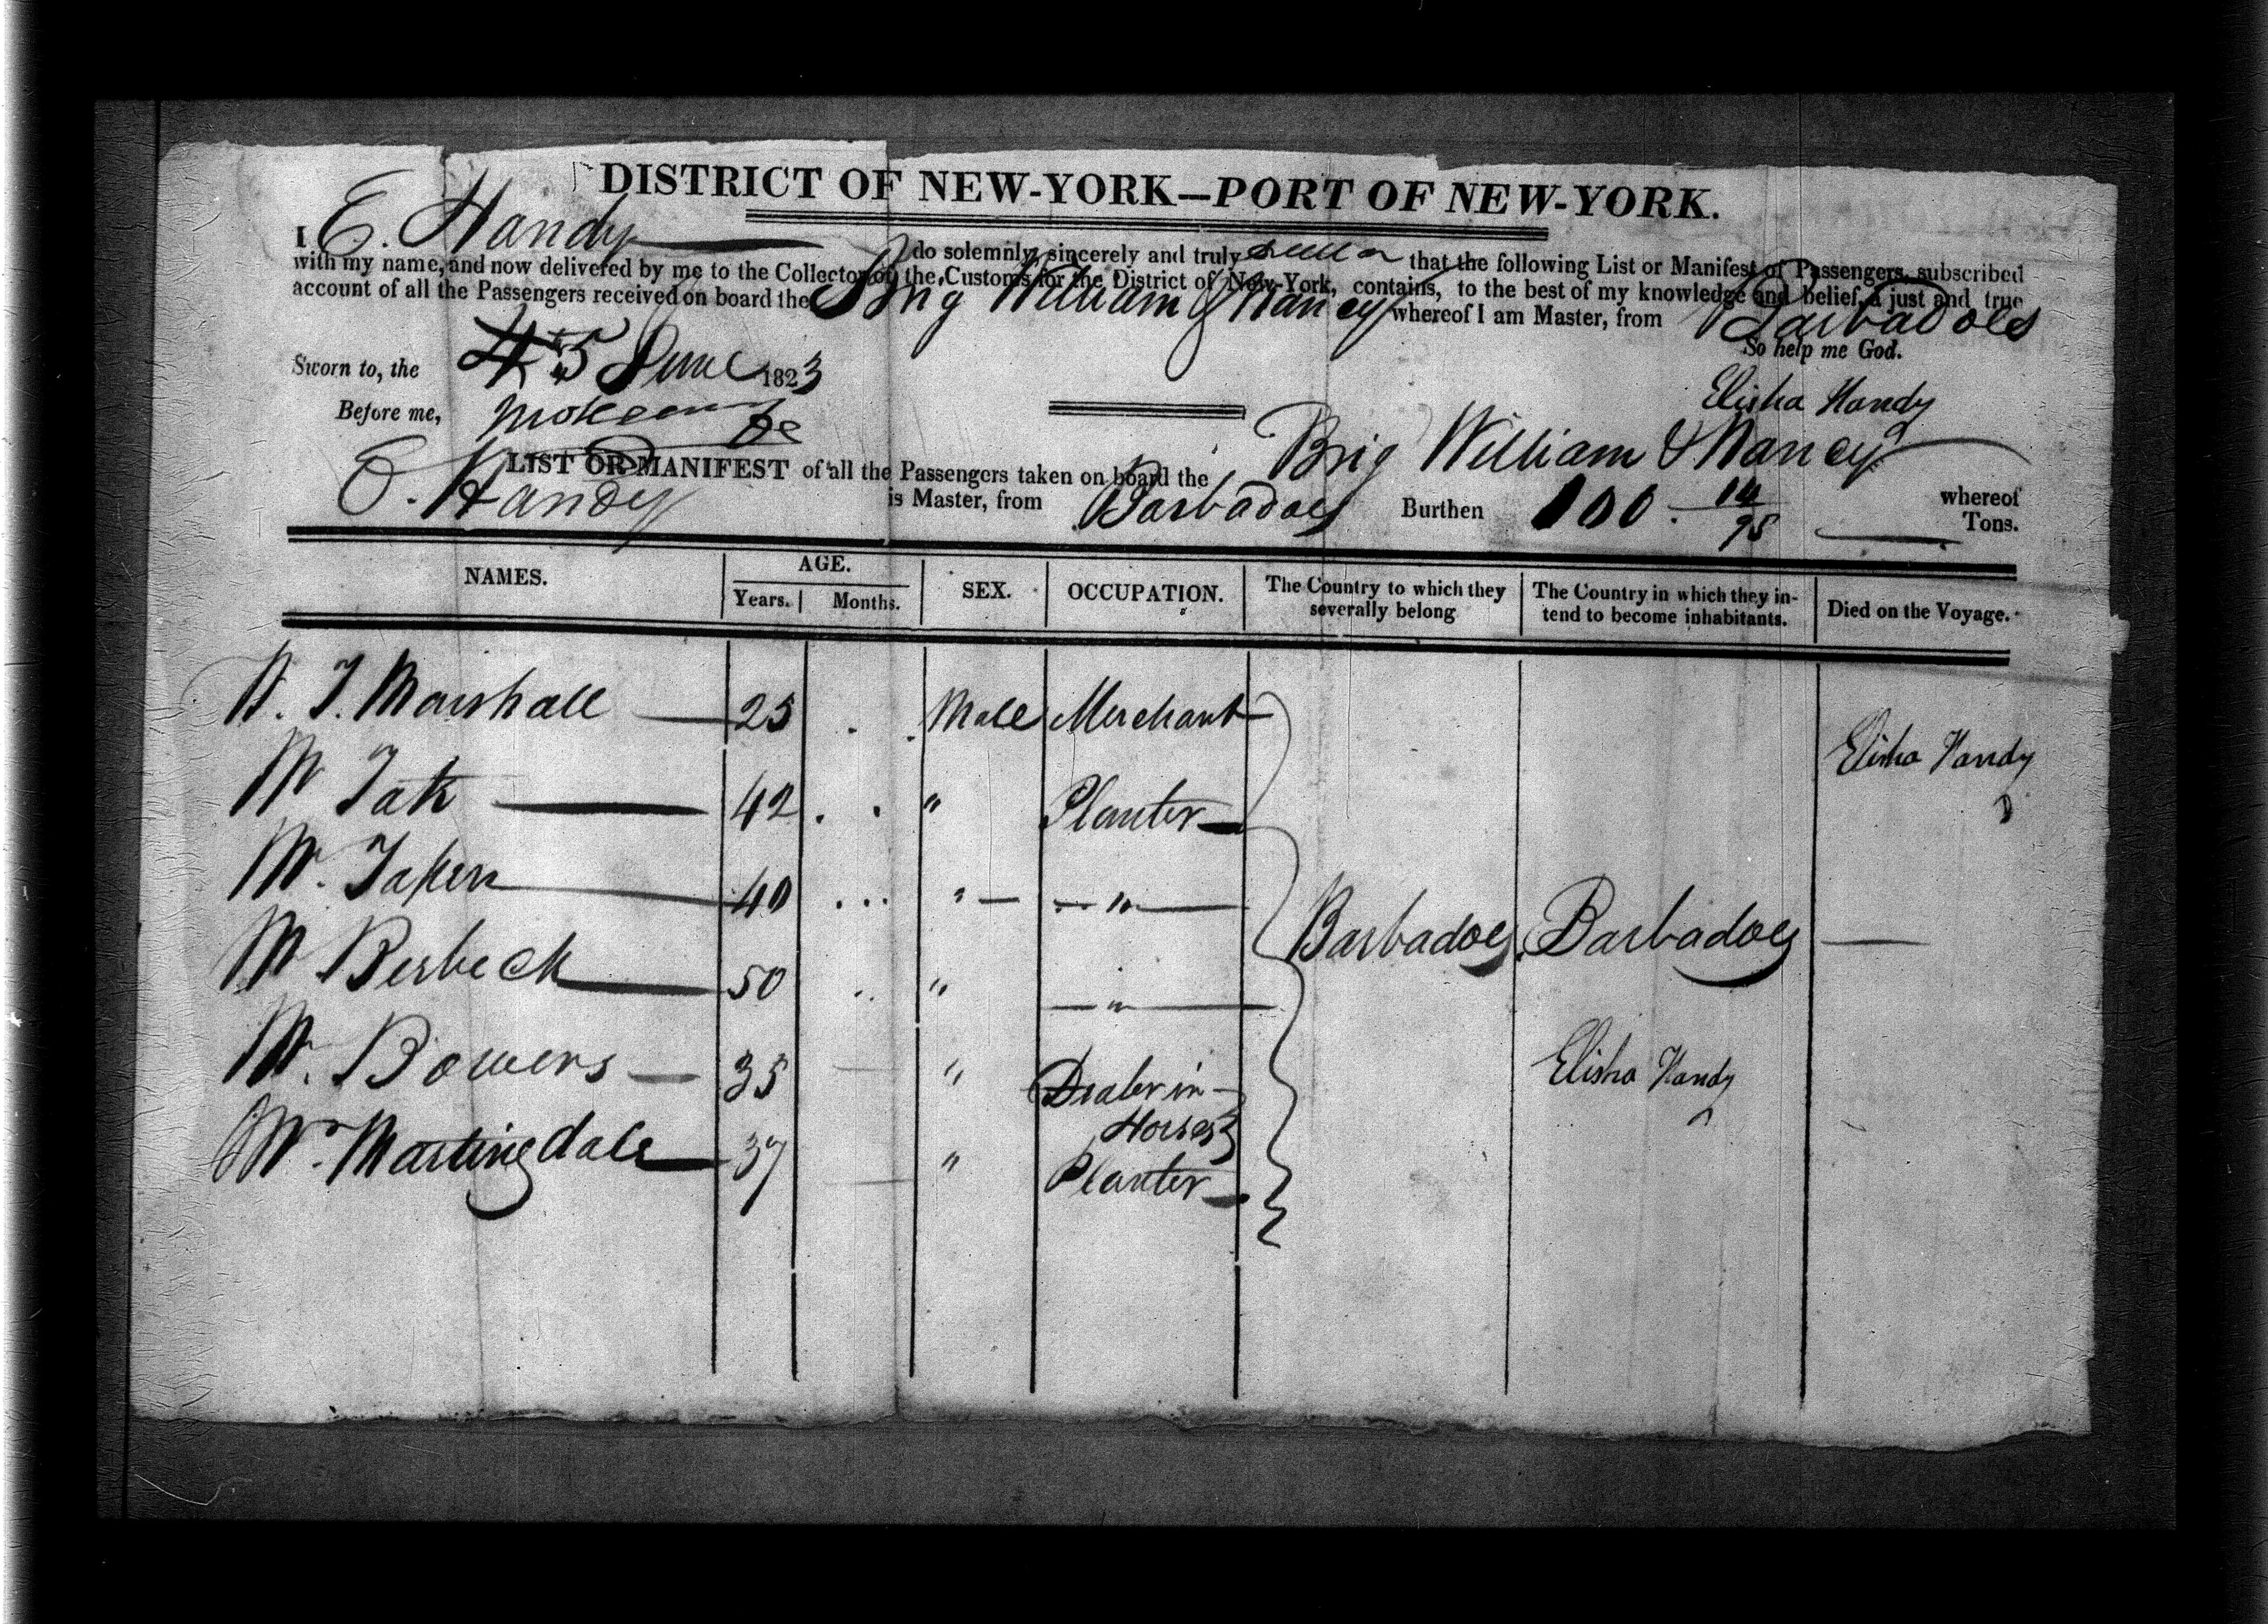 DISTRICT OF NEW-YORK—PORT OF NEW-YORK.
I E. Handy do solemnly, sincerely and truly swear that the following List or Manifest of Passengers, subscribed
with my name, and now delivered by me to the Collector of the Customs for the District of New-York, contains, to the best of my knowledge and belief, a just and true
account of all the Passengers received on board the Brig William & Nancy whereof I am Master, from Barbadoes
So help me God.
Sworn to, the 5 June 1823
Elisha Handy
Before me,
LIST OR MANIFEST of all the Passengers taken on board the Brig William & Nancy whereof
E. Handy is Master, from Barbadoes Burthen 100 . 14/95 Tons.
NAMES. AGE. SEX. OCCUPATION. The Country to which they severally belong The Country in which they intend to become inhabitants. Died on the Voyage.
Years. Months.
Marshall 25 Male Merchant
Elisha Handy
42 " Planter
40 " "
Barbadoes. Barbadoes
M Berbeck 50 " "
Mr. Bowers 35 " Dealer in Horses
Elisha Handy
Mr. Martingdale 37 " Planter